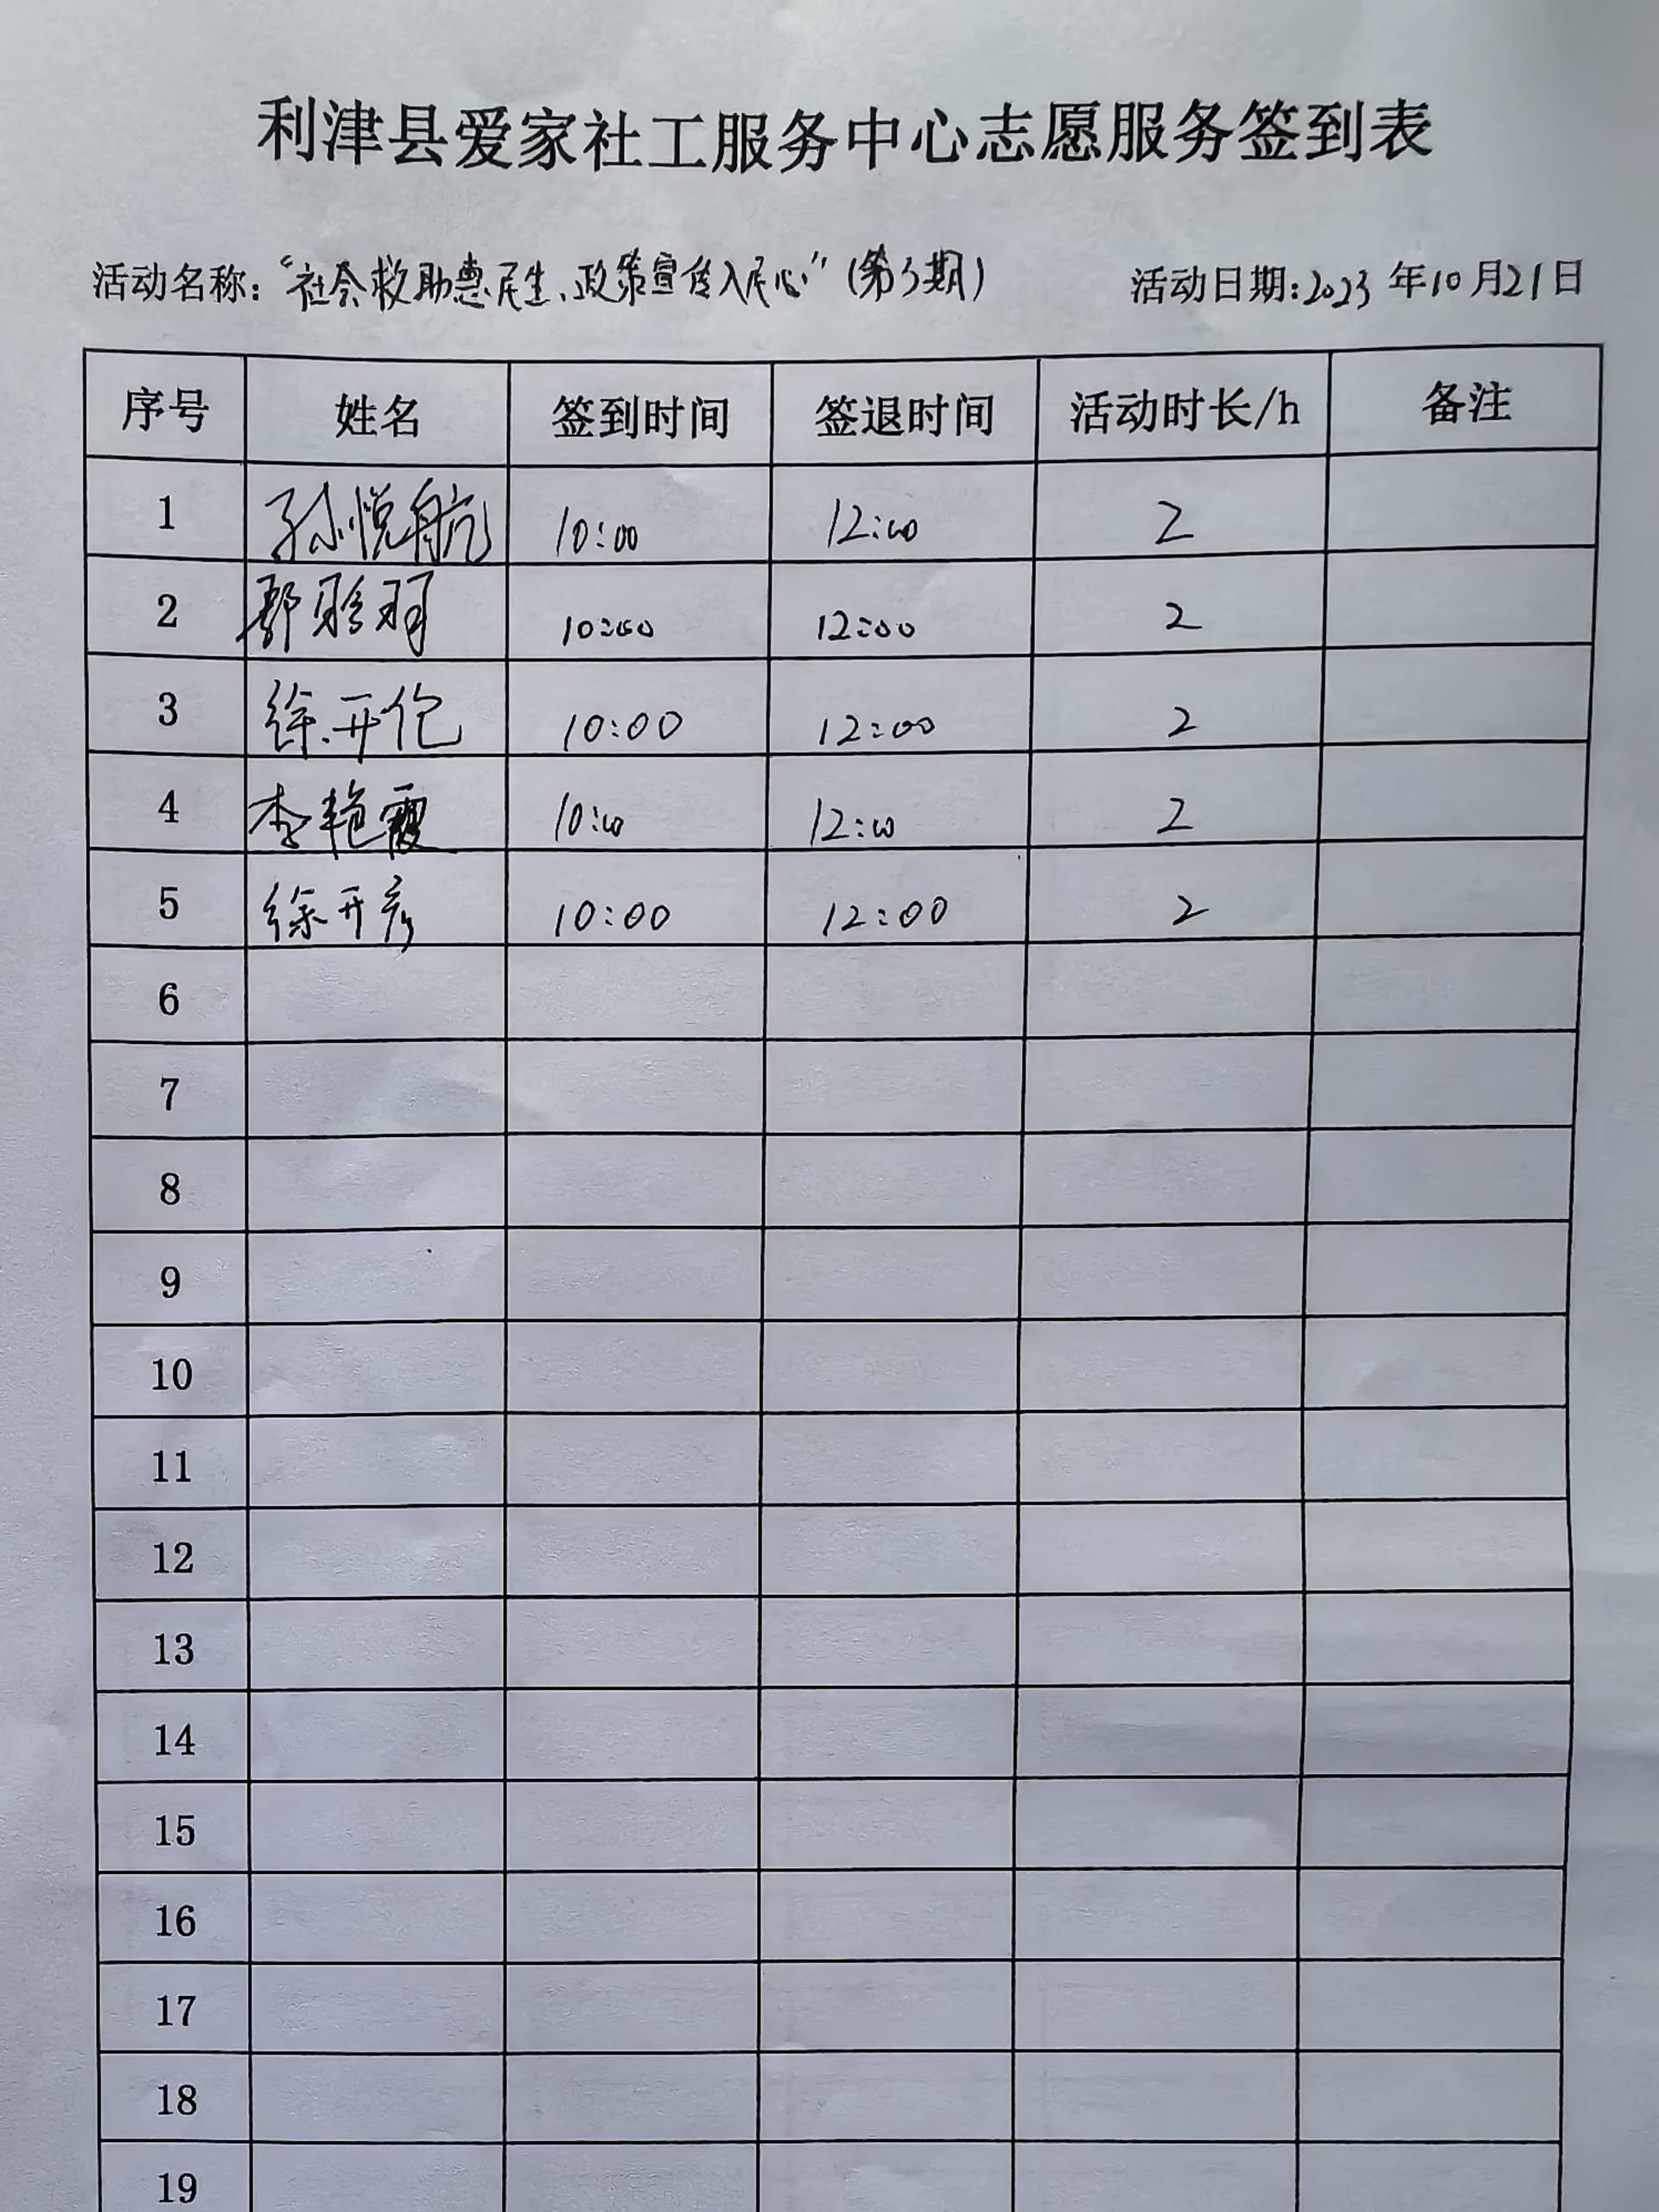 利津县爱家社工服务中心志愿服务签到表
活动名称：“社会救助惠民生、政策宣传入民心”（第3期） 活动日期：2023年10月21日
序号 姓名 签到时间 签退时间 活动时长/h 备注
1 孙悦航 10:00 12:00 2
2 10:00 12:00 2
3 徐开伦 10:00 12:00 2
4 李艳霞 10:00 12:00 2
5 徐开彦 10:00 12:00 2
6
7
8
9
10
11
12
13
14
15
16
17
18
19